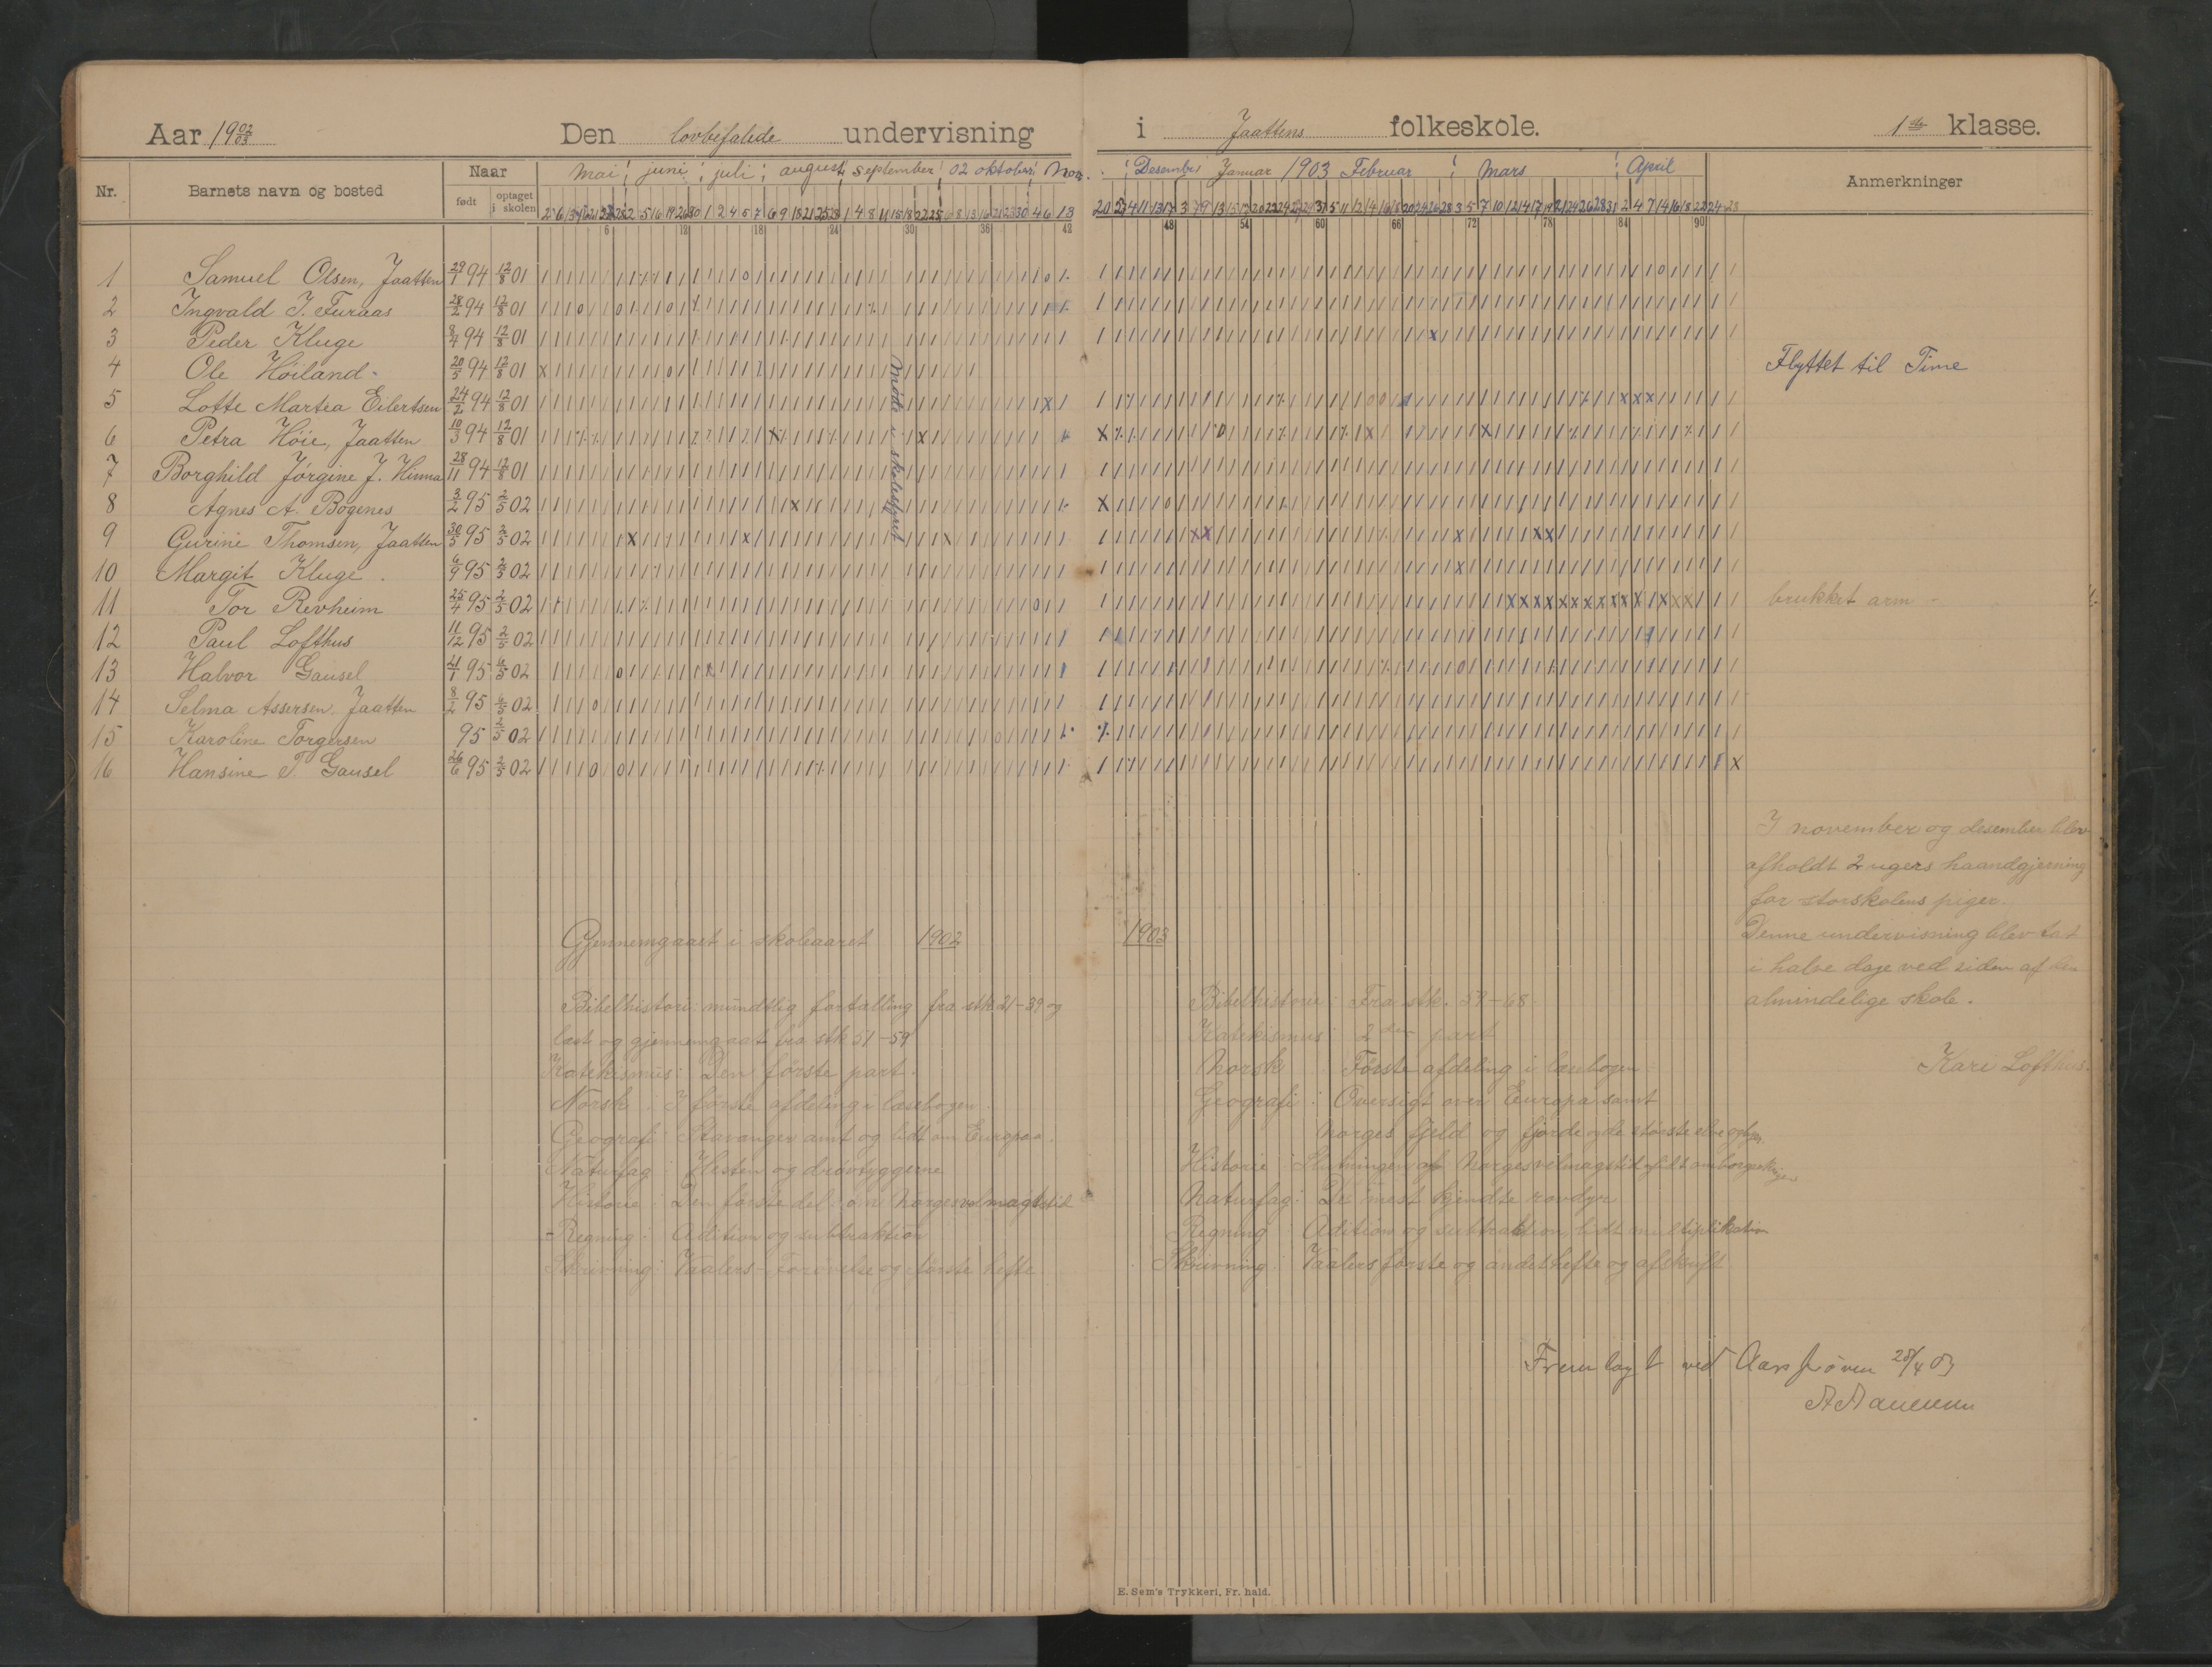 Aar 1902/03 Den lovbefalede undervisning i Jaattens folkeskole. 1ste klasse.
Nr. Barnets navn og bosted Naar født optaget i skolen Mai juni juli august september 02 oktober Nov. Desember Januar 1903 Februar Mars April Anmerkninger
6 12 18 24 30 36 42 48 54 60 66 72 78 84 90
1 Samuel Olsen, Jaatten 29/1 94 12/8 01
2 Ingvald J. Furaas 28/2 94 12/8 01
3 Peder Kluge 8/4 94 12/8 01
4 Ole Höiland 20/5 94 12/8 01 Flyttet til Time
5 Lotte Martea Eilertsen 24/2 94 12/8 01
6 Petra Höie, Jaatten 10/3 94 12/8 01
7 Borghild Jörgine J. Hinna 28/11 94 12/8 01
8 Agnes A. Bögenes 3/2 95 2/5 02
9 Gurine Thomsen, Jaatten 30/5 95 2/5 02
10 Margit Kluge 6/9 95 2/5 02
11 Tor Revheim 25/4 95 2/5 02 brukket arm
12 Paul Lofthus 11/12 95 2/5 02
13 Halvor Gausel 21/1 95 6/5 02
14 Selma Assersen Jaatten 8/2 95 6/5 02
15 Karoline Torgersen 95 2/5 02
16 Hansine T. Gausel 26/6 95 2/5 02
Möde i skolestyret
I november og desember blev
afholdt 2 ugers haandgjerning
for storskolens piger.
Denne undervisning blev tat
i halve dage ved siden af den
almindelige skole.
Kari Lofthus.
Gjennemgaaet i skoleaaret 1902
Bibelhistorie: mundtlig fortælling fra stk 21-39 og
læst og gjennemgaat fra stk 51-59
Katekismus: Den første part.
Norsk: I første afdeling i læsebogen.
Geografi: Stavanger amt og lidt om Europa.
Naturfag: Hesten og drøvtyggerne
Historie: Den første del om Norges velmagtstid
Regning: Adition og subtraktion
Skrivning: Vaalers Forøvelse og første hefte
1903
Bibelhistorie: Fra stk. 59-68.
Katekismus: 2den part
Norsk: Første afdeling i læsebogen
Geografi: Oversigt over Europa samt
Norges fjeld og fjorde og de største elve og byer.
Historie: Slutningen af Norges velmagtstid og lidt om borgerkrigen
Naturfag: De mest kjendte rovdyr
Regning: Adition og subtraktion, lidt multiplikation
Skrivning: Vaalers første og andet hefte og afskrift
Fremlagt ved Aarsprøven 28/4 03
E. Sem's Trykkeri, Fr. hald.